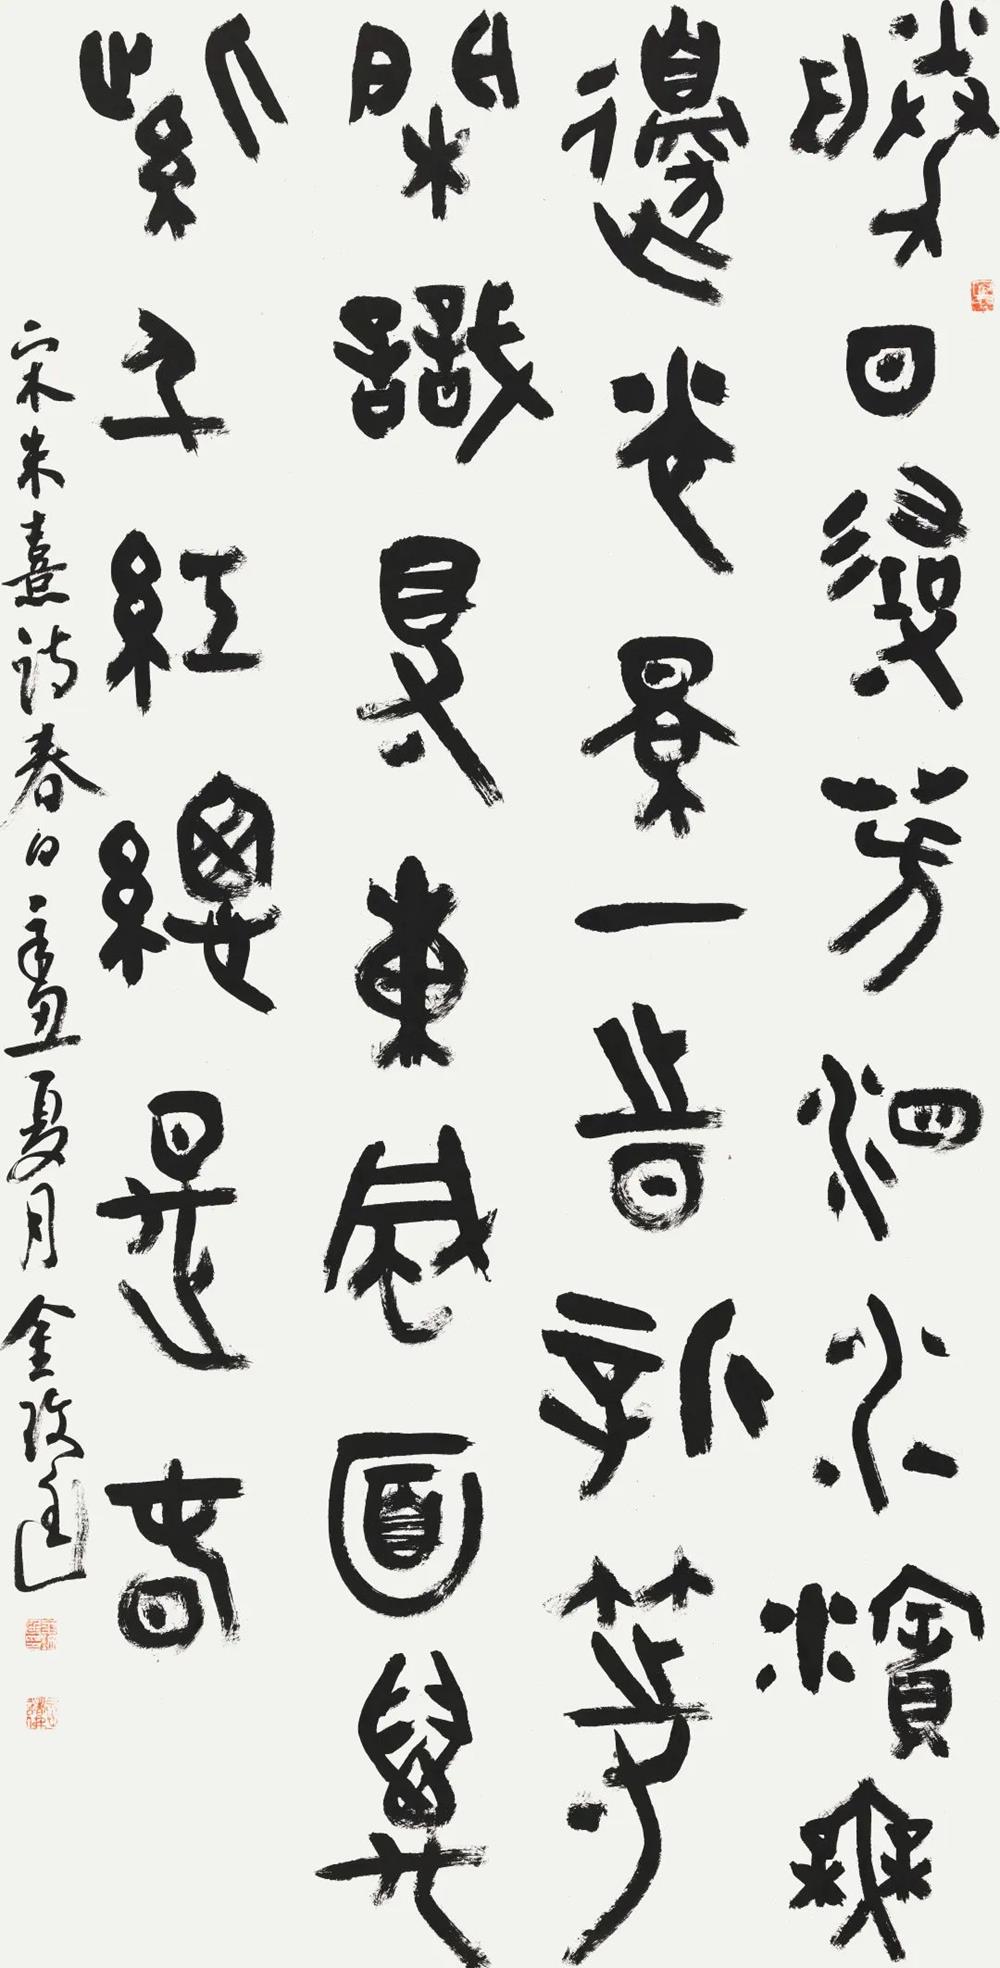 勝日尋芳泗水濱無
邊光景一時新等
閑識得東風面萬
紫千紅總是春
宋朱熹詩春日辛丑夏月金